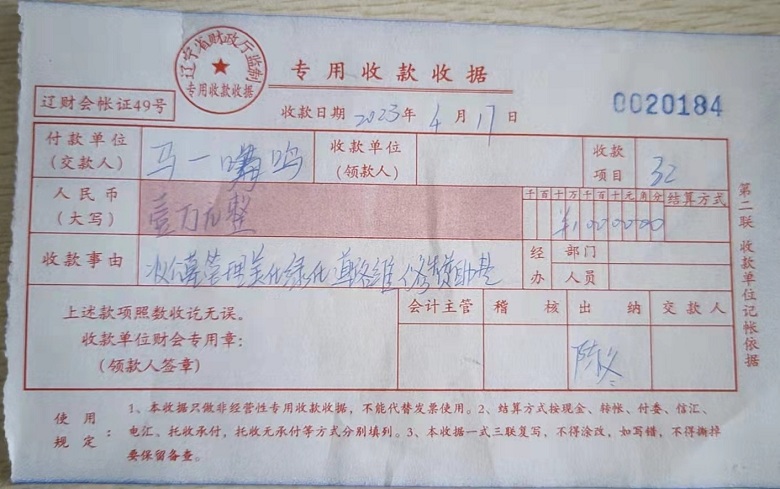 辽宁省财政厅监制
专用收款收据
专用收款收据
辽财会帐证49号
收款日期 2023年 4月 17日
0020184
付款单位(交款人) 马一 鸣 收款单位(领款人) 收款项目 32
人民币(大写) 壹万元整 千百十万千百十元角分 结算方式
¥1000000
收款事由 公墓管理美化绿化道路维修赞助 经办 部门 人员
上述款项照数收讫无误。
收款单位财会专用章:
(领款人签章)
会计主管 稽核 出纳 交款人
陈
第二联 收款单位记帐依据
使用规定:
1、本收据只做非经营性专用收款收据,不能代替发票使用。2、结算方式按现金、转帐、付委、信汇、
电汇、托收承付,托收无承付等方式分别填列。3、本收据一式三联复写,不得涂改,如写错,不得撕掉
要保留备查。